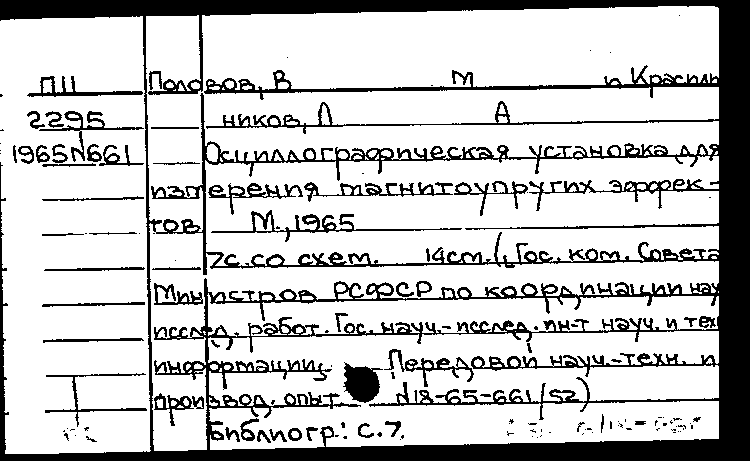 П11 Половов, В М и Красиль
2295 ников, Л А
1965N661 Осциллографическая установка для
измерения магнитоупругих эффек-
тов М., 1965
7с. со схем. 14см. (Гос. ком. Совета
Министров РСФСР по координации науч
исслед. работ. Гос. науч.-исслед. ин-т науч. и техн
информации. Передовой науч.-техн. и
производ. опыт. N18-65-661/52)
Библиогр.: с.7.